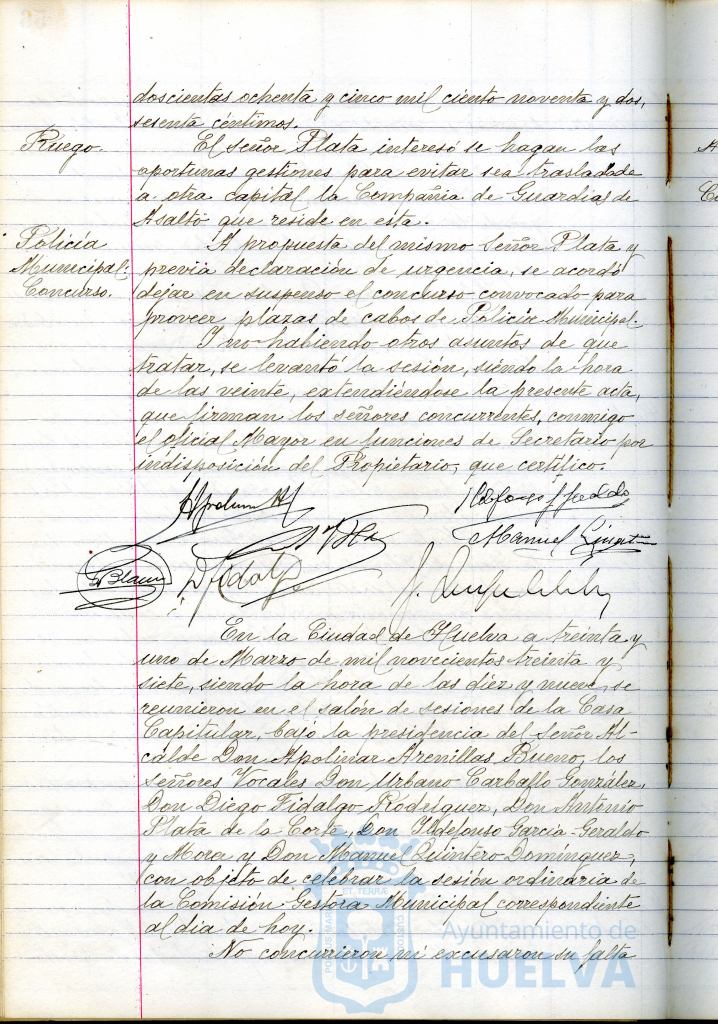 doscientas ochenta y cinco mil ciento noventa y dos,
sesenta céntimos.
Ruego.
El señor Plata interesó se hagan las
oportunas gestiones para evitar sea trasladada
a otra capital la Compañía de Guardias de
Asalto que reside en esta.
Policía
Municipal.
Concurso.
A propuesta del mismo Señor Plata y
previa declaración de urgencia, se acordó
dejar en suspenso el concurso convocado para
proveer plazas de cabos de Policía Municipal.
Y no habiendo otros asuntos de que
tratar, se levantó la sesión, siendo la hora
de las veinte, extendiéndose la presente acta,
que firman los señores concurrentes, conmigo
el oficial Mayor en funciones de Secretario por
indisposición del Propietario, que certifico.
Manuel
G. Blanco
En la Ciudad de Huelva a treinta y
uno de Marzo de mil novecientos treinta y
siete, siendo la hora de las diez y nueve, se
reunieron en el salón de sesiones de la Casa
Capitular, bajo la presidencia del Señor Al-
calde Don Apolinar Arenillas Bueno, los
señores Vocales Don Urbano Carballo González,
Don Diego Fidalgo Rodríguez, Don Antonio
Plata de la Corte, Don Ildefonso García-Geraldo
y Mora y Don Manuel Quintero Domínguez,
con objeto de celebrar la sesión ordinaria de
la Comisión Gestora Municipal correspondiente
al día de hoy.
No concurrieron ni excusaron su falta
Ayuntamiento de
HUELVA